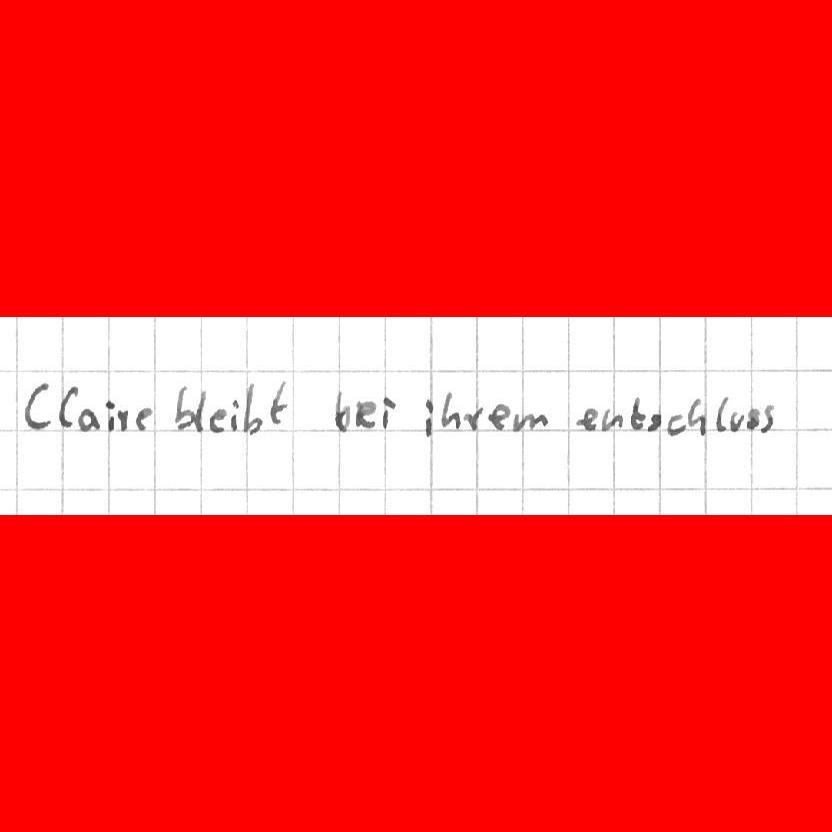 Claire bleibt bei ihrem entschluss